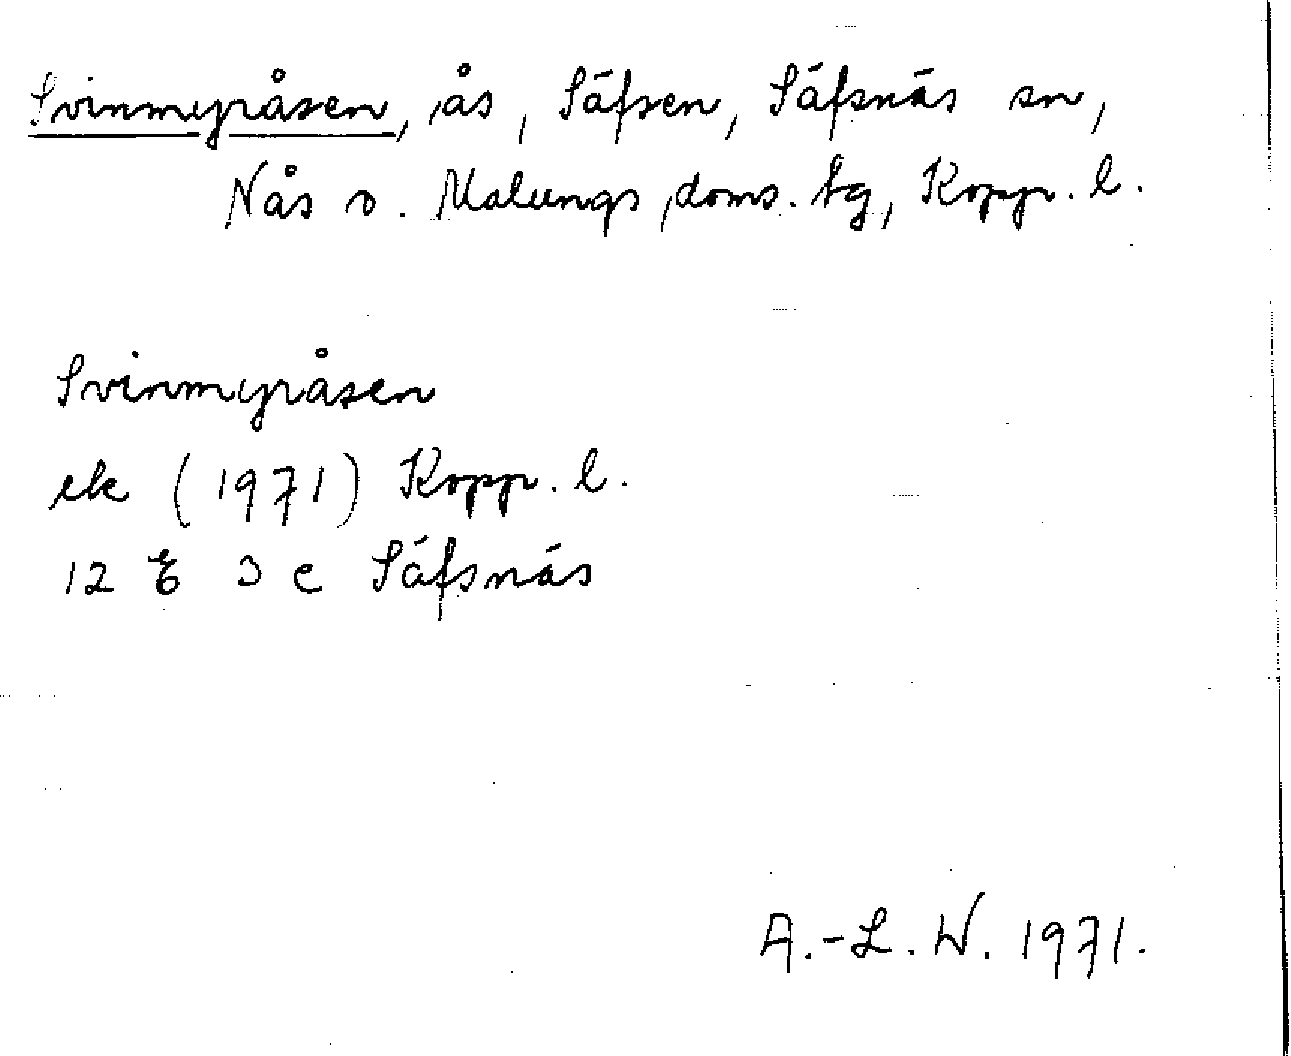 Svinmyråsen, ås, Säfsen, Säfsnäs sn,
Nås o. Malungs doms. tg, Kopp. l.
Svinmyråsen
ek (1971) Kopp. l.
12 E 3 c Säfsnäs
A.-L. W. 1971.